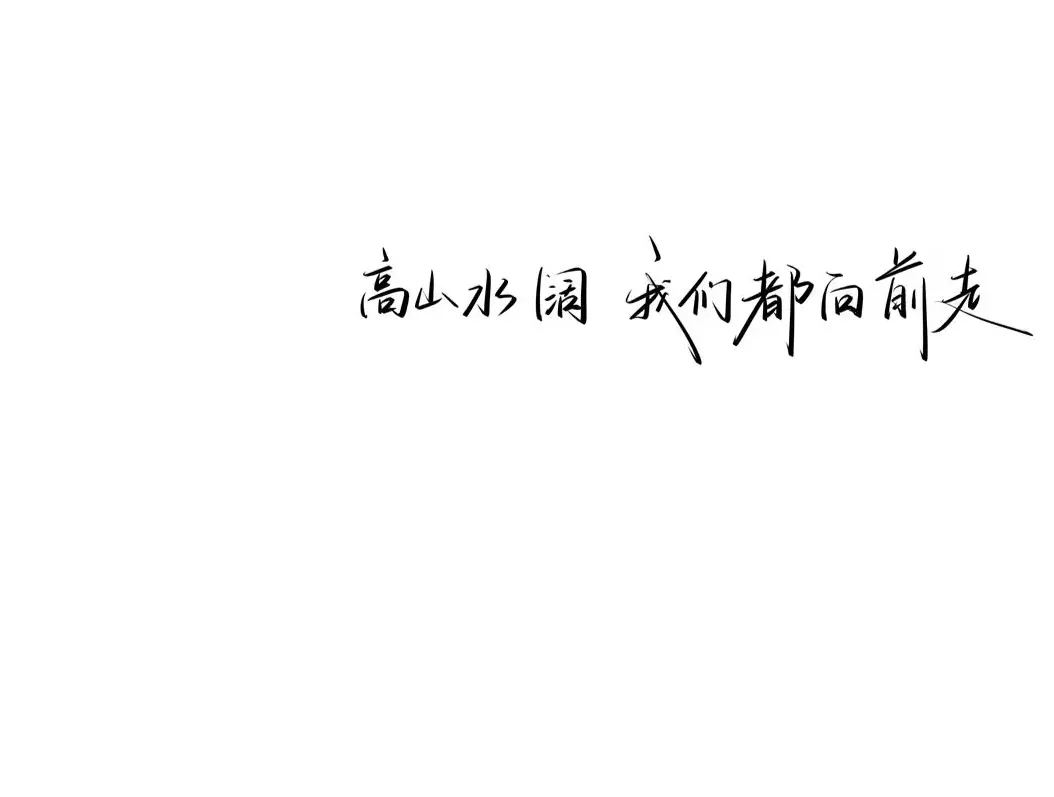 高山水阔 我们都向前走